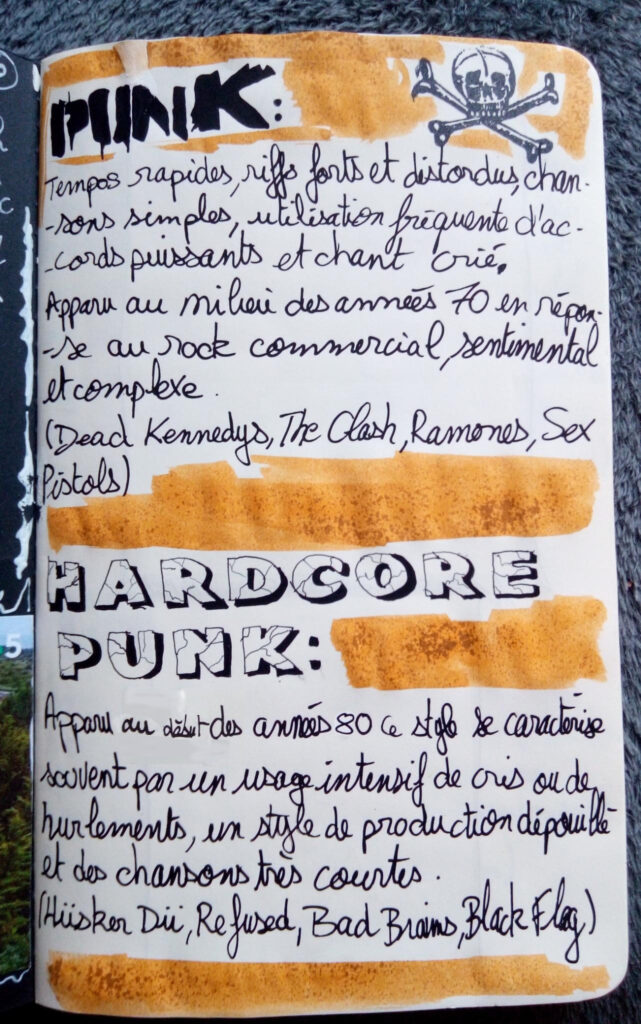 PUNK:
Tempos rapides, riffs forts et distordus, chan-
-sons simples, utilisation fréquente d'ac-
-cords puissants et chant crié.
Apparu au milieu des années 70 en répon-
-se au rock commercial, sentimental
et complexe.
(Dead Kennedys, The Clash, Ramones, Sex
Pistols)
HARDCORE
PUNK:
Apparu au début des années 80 ce style se caractérise
souvent par un usage intensif de cris ou de
hurlements, un style de production dépouillé
et des chansons très courtes.
(Hüsker Dü, Refused, Bad Brains, Black Flag)
5